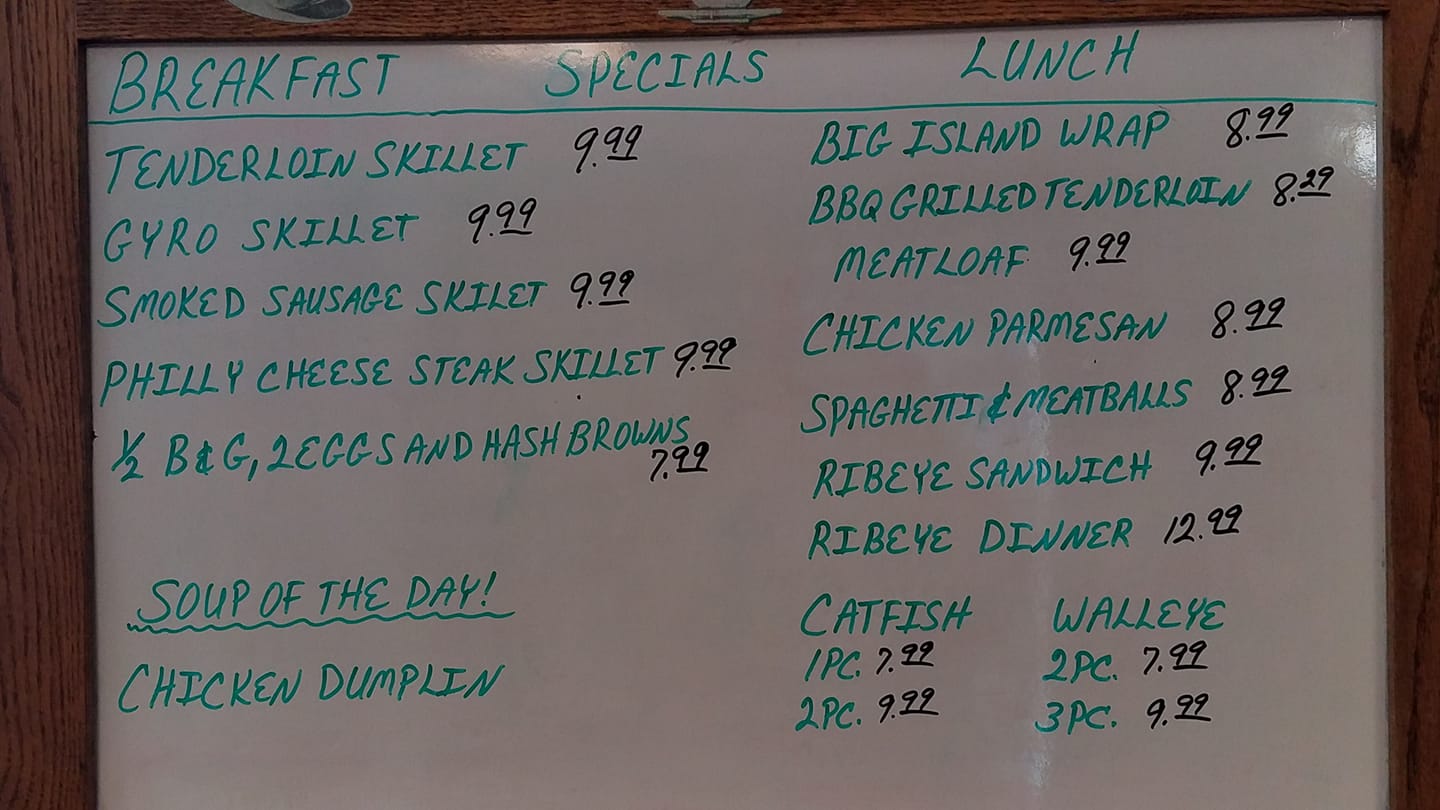 BREAKFAST SPECIALS LUNCH
TENDERLOIN SKILLET 9.99
GYRO SKILLET 9.99
SMOKED SAUSAGE SKILET 9.99
PHILLY CHEESE STEAK SKILLET 9.99
½ B&G, 2 EGGS AND HASH BROWNS
7.99
SOUP OF THE DAY!
CHICKEN DUMPLIN
BIG ISLAND WRAP 8.99
BBQ GRILLED TENDERLOIN 8.29
MEATLOAF 9.99
CHICKEN PARMESAN 8.99
SPAGHETTI & MEATBALLS 8.99
RIBEYE SANDWICH 9.99
RIBEYE DINNER 12.99
CATFISH WALLEYE
1PC. 7.99 2PC. 7.99
2PC. 9.99 3PC. 9.99